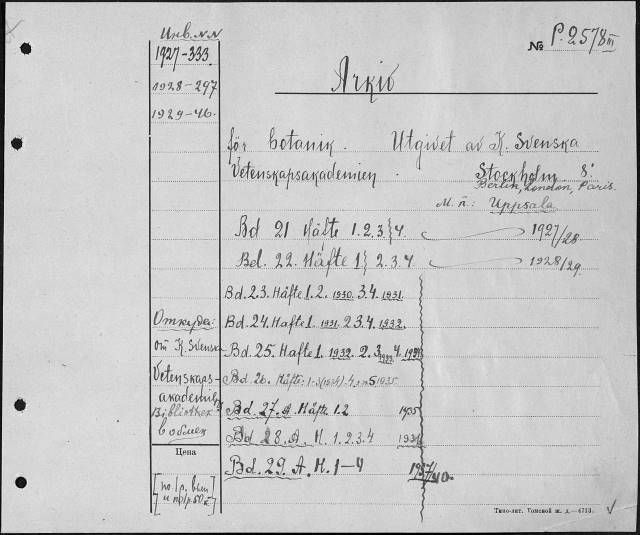 Инв. NN
1927-333.
1928-297
1929-46.
№ P.2578 III
Arkiv
för botanik. Utgivet av K. Svenska
Vetenskapsakademien. Stockholm 8°.
Berlin, London, Paris.
Uppsala
Bd 21 Häfte 1.2.3}4. 1927/28
Bd. 22. Häfte 1} 2.3.4 1928/29.
Bd. 23. Häfte 1.2. 1930. 3.4. 1931.
Bd. 24. Hafte 1. 1931. 2 3.4. 1932.
Откуда:
от K. Svenska
Vetenskaps-
akademien
Bibliothek
в обмен
Bd. 25. Hafte 1. 1932. 2. 3 1933. 4.
Bd. 26. Häfte: 1-3 (1934). 4 5 1935
Bd. 27. A. Häfte 1.2 1935
Bd 28. A. H. 1.2.3.4 1936
Bd. 29. A. H. 1-4 1937/40.
Цена
Типо-лит. Томской ж. д.—4713.